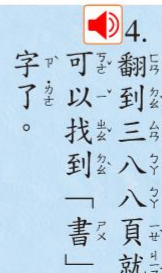 4.
翻到三八八頁就
可以找到「書」
字了。